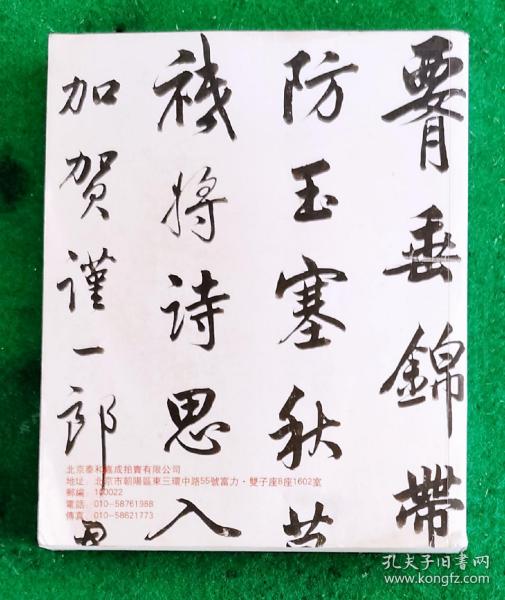 腰垂錦帶
防玉塞秋
祇將詩思入
加賀謹一郎
北京泰和嘉成拍賣有限公司
地址：北京市朝陽區東三環中路55號富力·雙子座B座1602室
郵編：100022
電話：010-58761988
傳真：010-58621773
孔夫子旧书网
www.kongfz.com